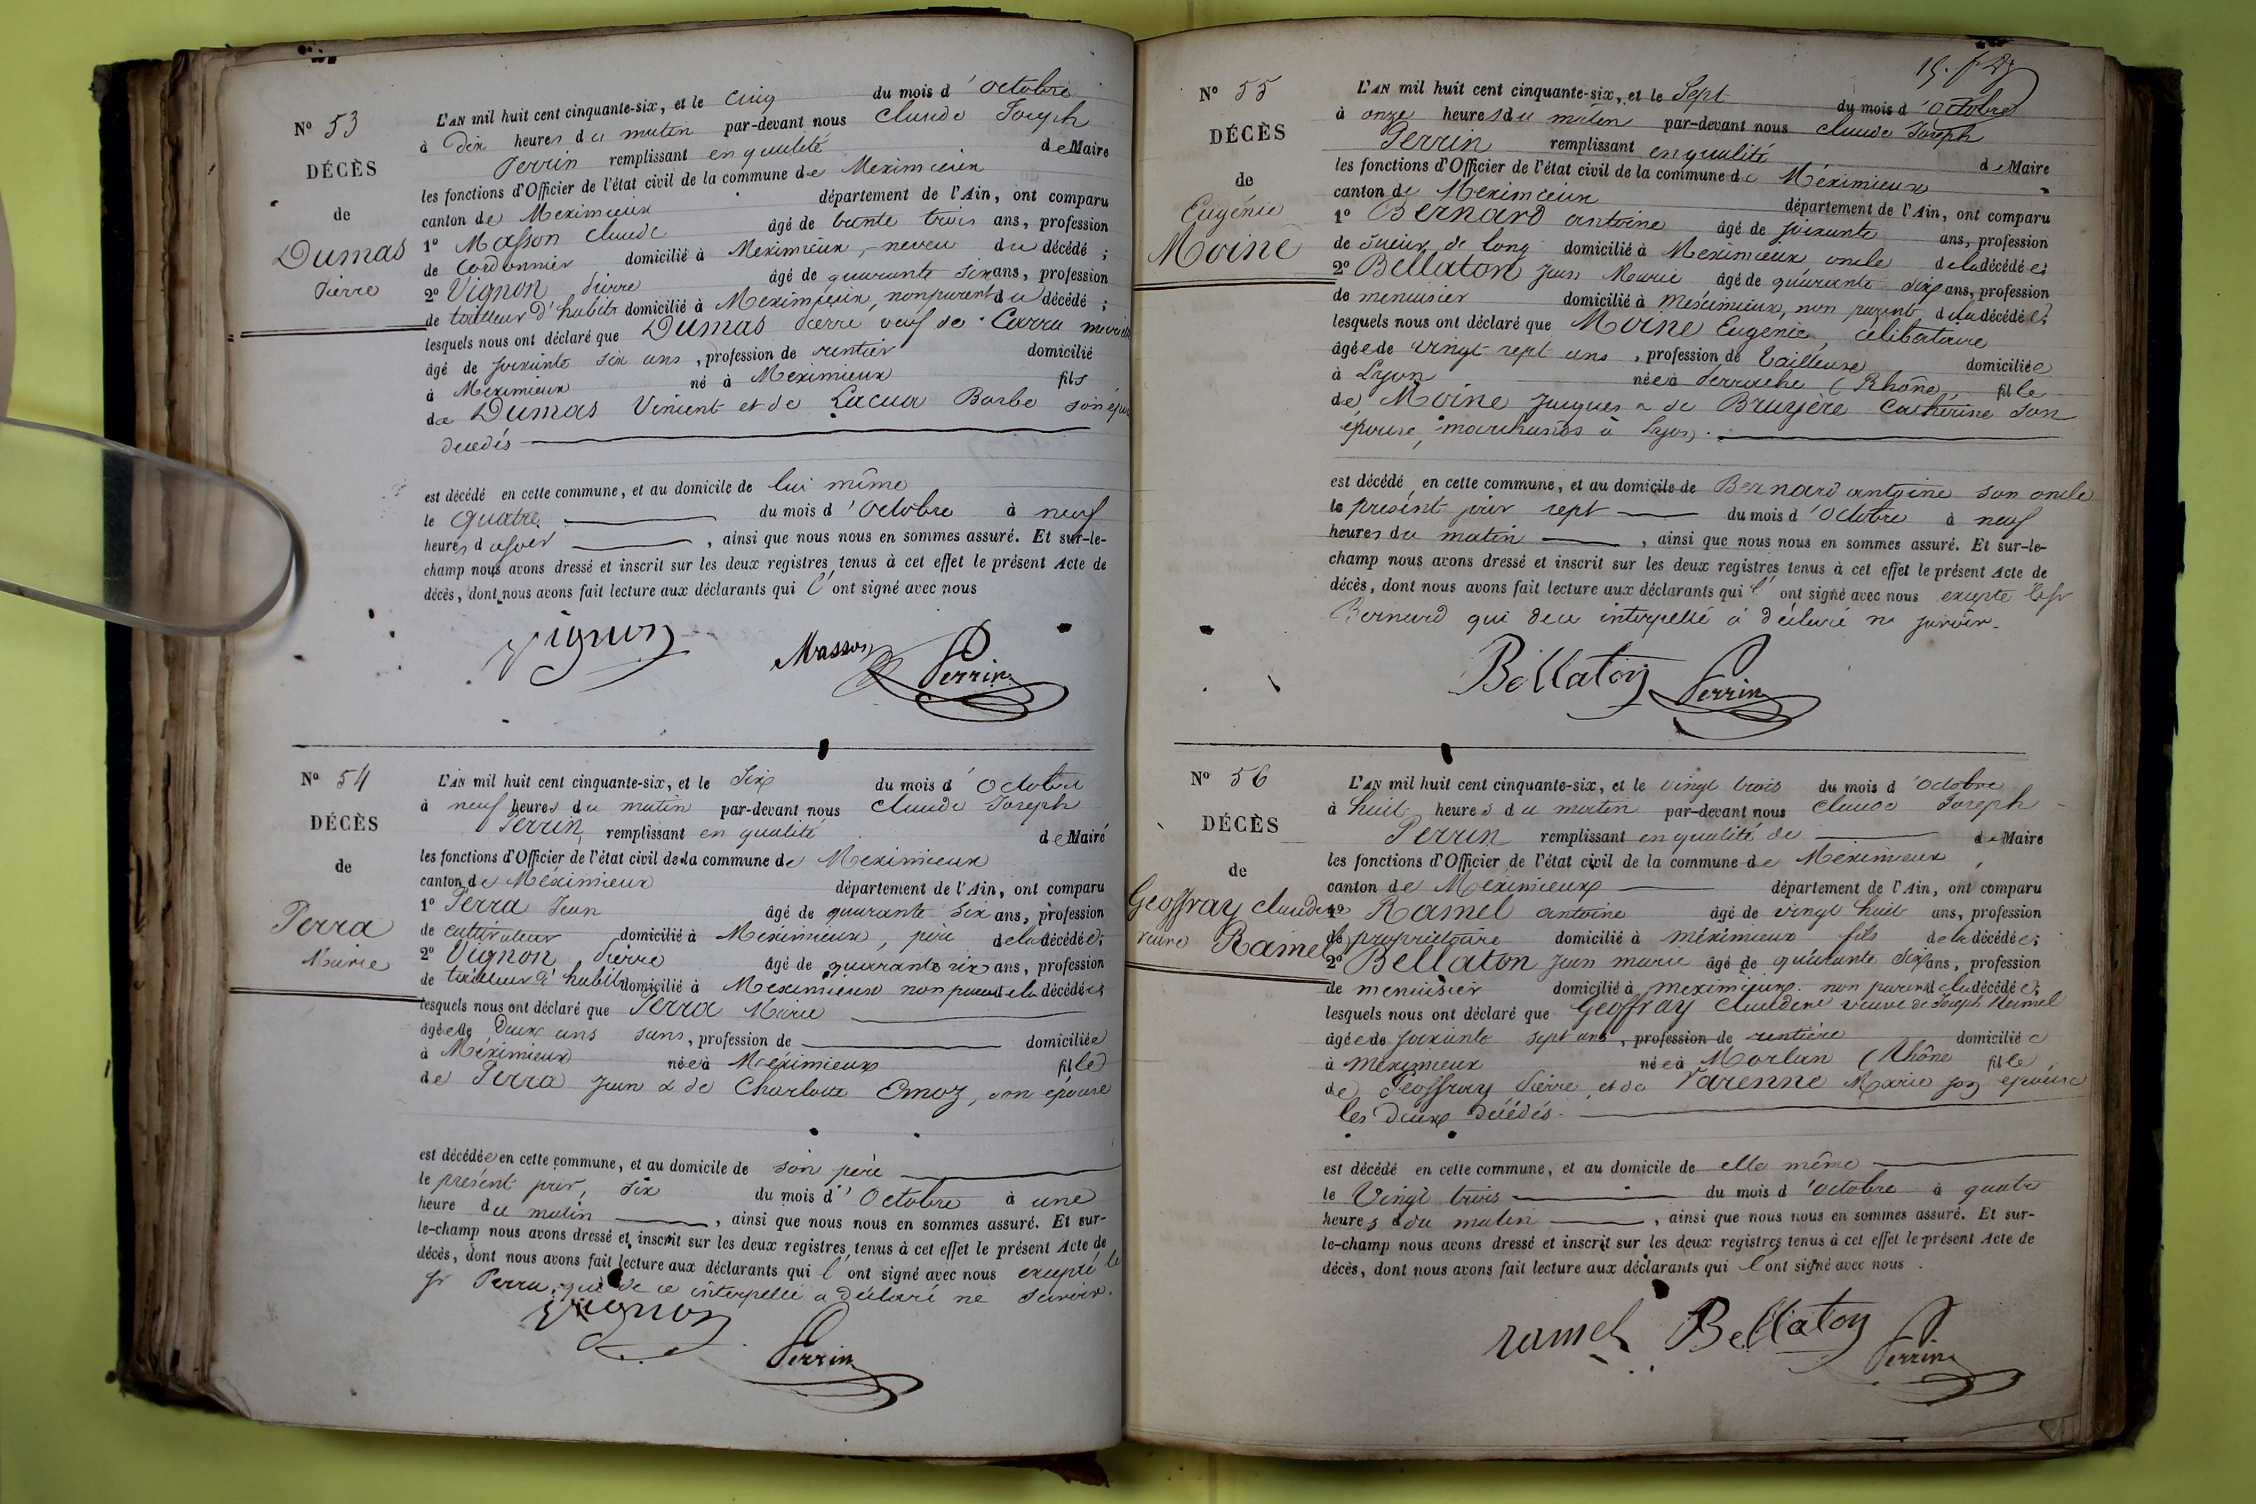 N° 53
DÉCÈS
de
Dumas
Pierre
L'AN mil huit cent cinquante-six, et le cinq du mois d'octobre
à dix heures du matin par-devant nous Claude Joseph
Perrin remplissant en qualité de Maire
les fonctions d'Officier de l'état civil de la commune de Meximieux
canton de Meximieux département de l'Ain, ont comparu
1° Masson Claude âgé de trente trois ans, profession
de Cordonnier domicilié à Meximieux, neveu du décédé ;
2° Vignon Pierre âgé de quarante six ans, profession
de tailleur d'habits domicilié à Meximieux, non parent du décédé ;
lesquels nous ont déclaré que Dumas Pierre veuf de Carra
âgé de soixante six ans, profession de rentier domicilié
à Meximieux né à Meximieux fils
de Dumas Vincent et de Lacua Barbe son
décedés
est décédé en cette commune, et au domicile de lui même
le quatre du mois d'Octobre à neuf
heures du soir, ainsi que nous nous en sommes assuré. Et sur-le-
champ nous avons dressé et inscrit sur les deux registres tenus à cet effet le présent Acte de
décès, dont nous avons fait lecture aux déclarants qui l'ont signé avec nous
Vignon Masson Perrin
N° 54
DÉCÈS
de
Perra
Marie
L'AN mil huit cent cinquante-six, et le Six du mois d'Octobre
à neuf heures du matin par-devant nous Claude Joseph
Perrin remplissant en qualité de Maire
les fonctions d'Officier de l'état civil de la commune de Meximieux
canton de Méximieux département de l'Ain, ont comparu
1° Perra Jean âgé de quarante six ans, profession
de cultivateur domicilié à Méximieux, père de la décédée;
2° Vignon Pierre âgé de quarante six ans, profession
de tailleur d'habits domicilié à Meximieux non parent de la décédée;
lesquels nous ont déclaré que Perra Marie
âgée de Deux ans sans, profession de domiciliée
à Méximieux née à Méximieux fille
de Perra Jean & de Charlotte Emoz, son épouse
est décédée en cette commune, et au domicile de son père
le présent jour, six du mois d'Octobre à une
heure du matin, ainsi que nous nous en sommes assuré. Et sur-
le-champ nous avons dressé et inscrit sur les deux registres tenus à cet effet le présent Acte de
décès, dont nous avons fait lecture aux déclarants qui l'ont signé avec nous excepté le
sr Perra, qui de ce interpellé a déclaré ne savoir.
Vignon
Perrin
N° 55
DÉCÈS
de
Eugénie
Moine
L'AN mil huit cent cinquante-six, et le Sept du mois d'Octobre
à onze heures du matin par-devant nous Claude Joseph
Perrin remplissant en qualité de Maire
les fonctions d'Officier de l'état civil de la commune de Méximieux
canton de Meximieux département de l'Ain, ont comparu
1° Bernard antoine âgé de soixante ans, profession
de scieur de long domicilié à Meximieux oncle de la décédée;
2° Bellaton Jean Marie âgé de quarante six ans, profession
de menuisier domicilié à Meximieux, non parent de la décédée;
lesquels nous ont déclaré que Moine Eugenie, célibataire
âgée de vingt sept ans, profession de Tailleuse domiciliée
à Lyon née à Perrache (Rhône, fille
de Moine Jacques & de Bruyère Cathérine son
épouse, marchands à Lyon.
est décédé en cette commune, et au domicile de Bernard antoine son oncle
le présent jour sept du mois d'Octobre à neuf
heures du matin, ainsi que nous nous en sommes assuré. Et sur-le-
champ nous avons dressé et inscrit sur les deux registres tenus à cet effet le présent Acte de
décès, dont nous avons fait lecture aux déclarants qui l'ont signé avec nous excepté le sr
Bernard qui de ce interpellé a déclaré ne savoir.
Bellaton Perrin
N° 56
DÉCÈS
de
Geoffray Claudine
veuve Ramel
L'AN mil huit cent cinquante-six, et le vingt trois du mois d'octobre
à huit heures du matin par-devant nous Claude Joseph
Perrin remplissant en qualité de de Maire
les fonctions d'Officier de l'état civil de la commune de Méximieux
canton de Méximieux département de l'Ain, ont comparu
1° Ramel antoine âgé de vingt huit ans, profession
de propriétaire domicilié à Méximieux fils de la décédée;
2° Bellaton Jean marie âgé de quarante six ans, profession
de menuisier domicilié à meximieux. non parent de la décédée;
lesquels nous ont déclaré que Geoffray Claudine veuve de Joseph Ramel
âgée de soixante sept ans, profession de rentière domiciliée
à Meximieux née à Morlan (Rhône fille
de Geoffray Pierre et de Varenne Marie son épouse
les deux décédés.
est décédé en cette commune, et au domicile de elle même
le Vingt trois du mois d'octobre à quatre
heures du matin, ainsi que nous nous en sommes assuré. Et sur-
le-champ nous avons dressé et inscrit sur les deux registres tenus à cet effet le présent Acte de
décès, dont nous avons fait lecture aux déclarants qui l'ont signé avec nous.
ramel Bellaton Perrin